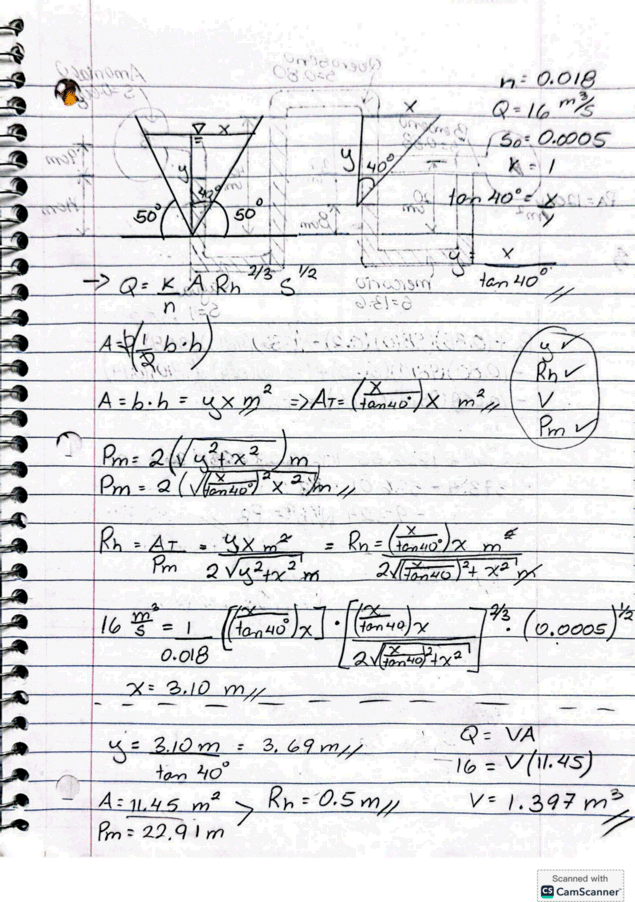 n = 0.018
Q = 16 m³/s
So = 0.0005
x = 1
tan 40° = x/y
y = x / tan 40°
x
y
40°
50°
50°
x
y
40°
→ Q = K/n A Rh^2/3 S^1/2
A = 2(1/2 b·h)
A = b·h = yx m² => AT = (x/tan40°)x m²//
y ✓
Rh ✓
V
Pm ✓
Pm = 2(√y²+x²) m
Pm = 2(√(x/tan40°)² x²) m//
Rh = AT/Pm = yx m²/2√y²+x² m = Rh = (x/tan40°)x m²/2√(x/tan40)²+x² m
16 m³/s = 1/0.018 [(x/tan40°)x] · [(x/tan40)x/2√(x/tan40)²+x²]^2/3 · (0.0005)^1/2
x = 3.10 m//
y = 3.10 m/tan 40° = 3.69 m//
Q = VA
16 = V(11.45)
A = 11.45 m² > Rh = 0.5 m//
V = 1.397 m³//
Pm = 22.91 m
Scanned with
CS CamScanner